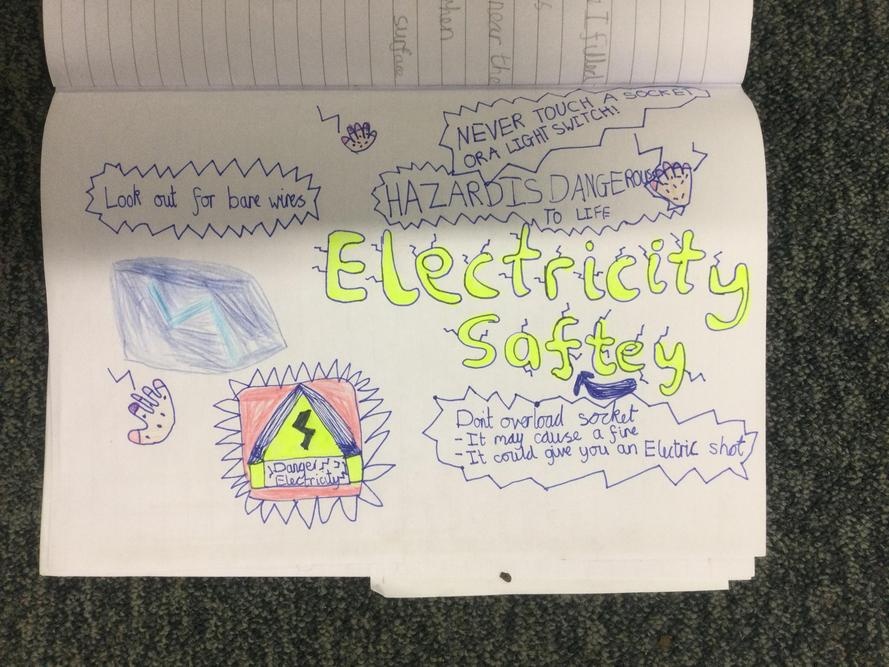 I filled
near the
when
surface
NEVER TOUCH A SOCKET
OR A LIGHT SWITCH!
HAZARD IS DANGEROUS
TO LIFE
Look out for bare wires
Electricity
Saftey
Danger
Electricity
Don't overload socket
- It may cause a fire
- It could give you an Electric shot